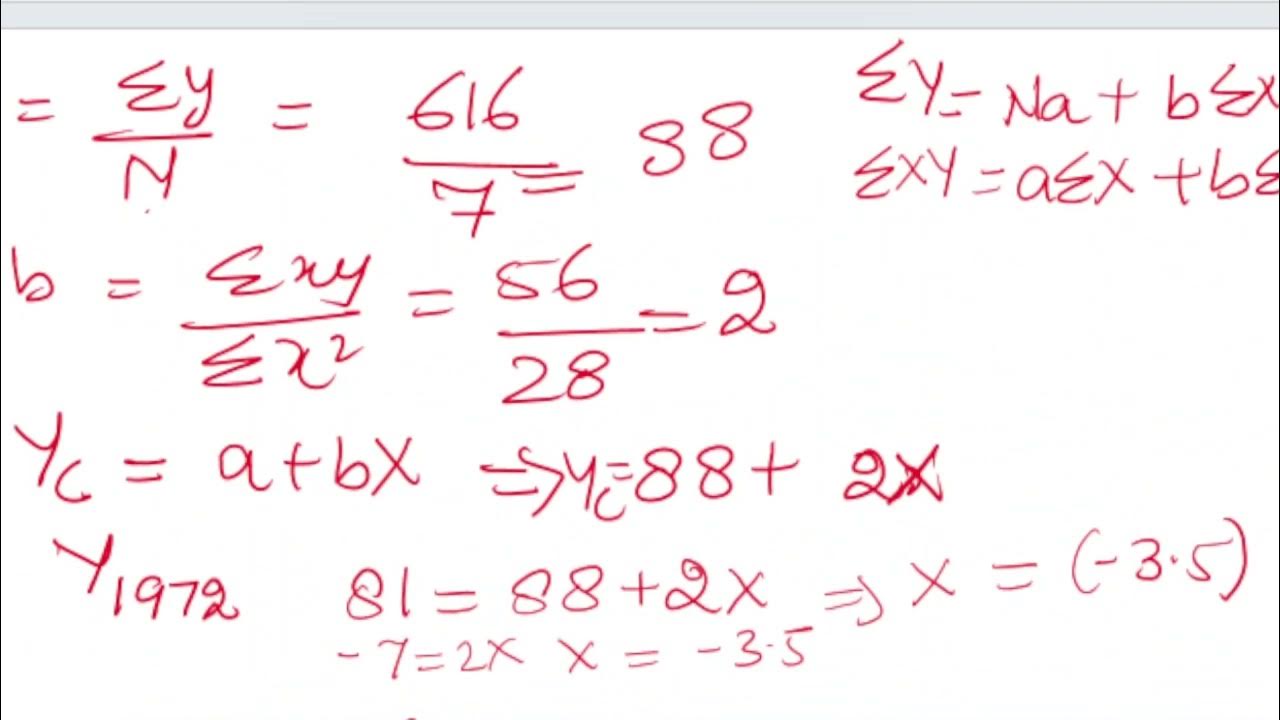 = Σy/N = 616/7 = 88
ΣY = Na + bΣX
ΣXY = aΣX + bΣ
b = Σxy/Σx² = 56/28 = 2
Yc = a+bX ⇒ Yc = 88+ 2X
Y1972 81 = 88+2X ⇒ X = (-3.5)
-7=2X X = -3.5